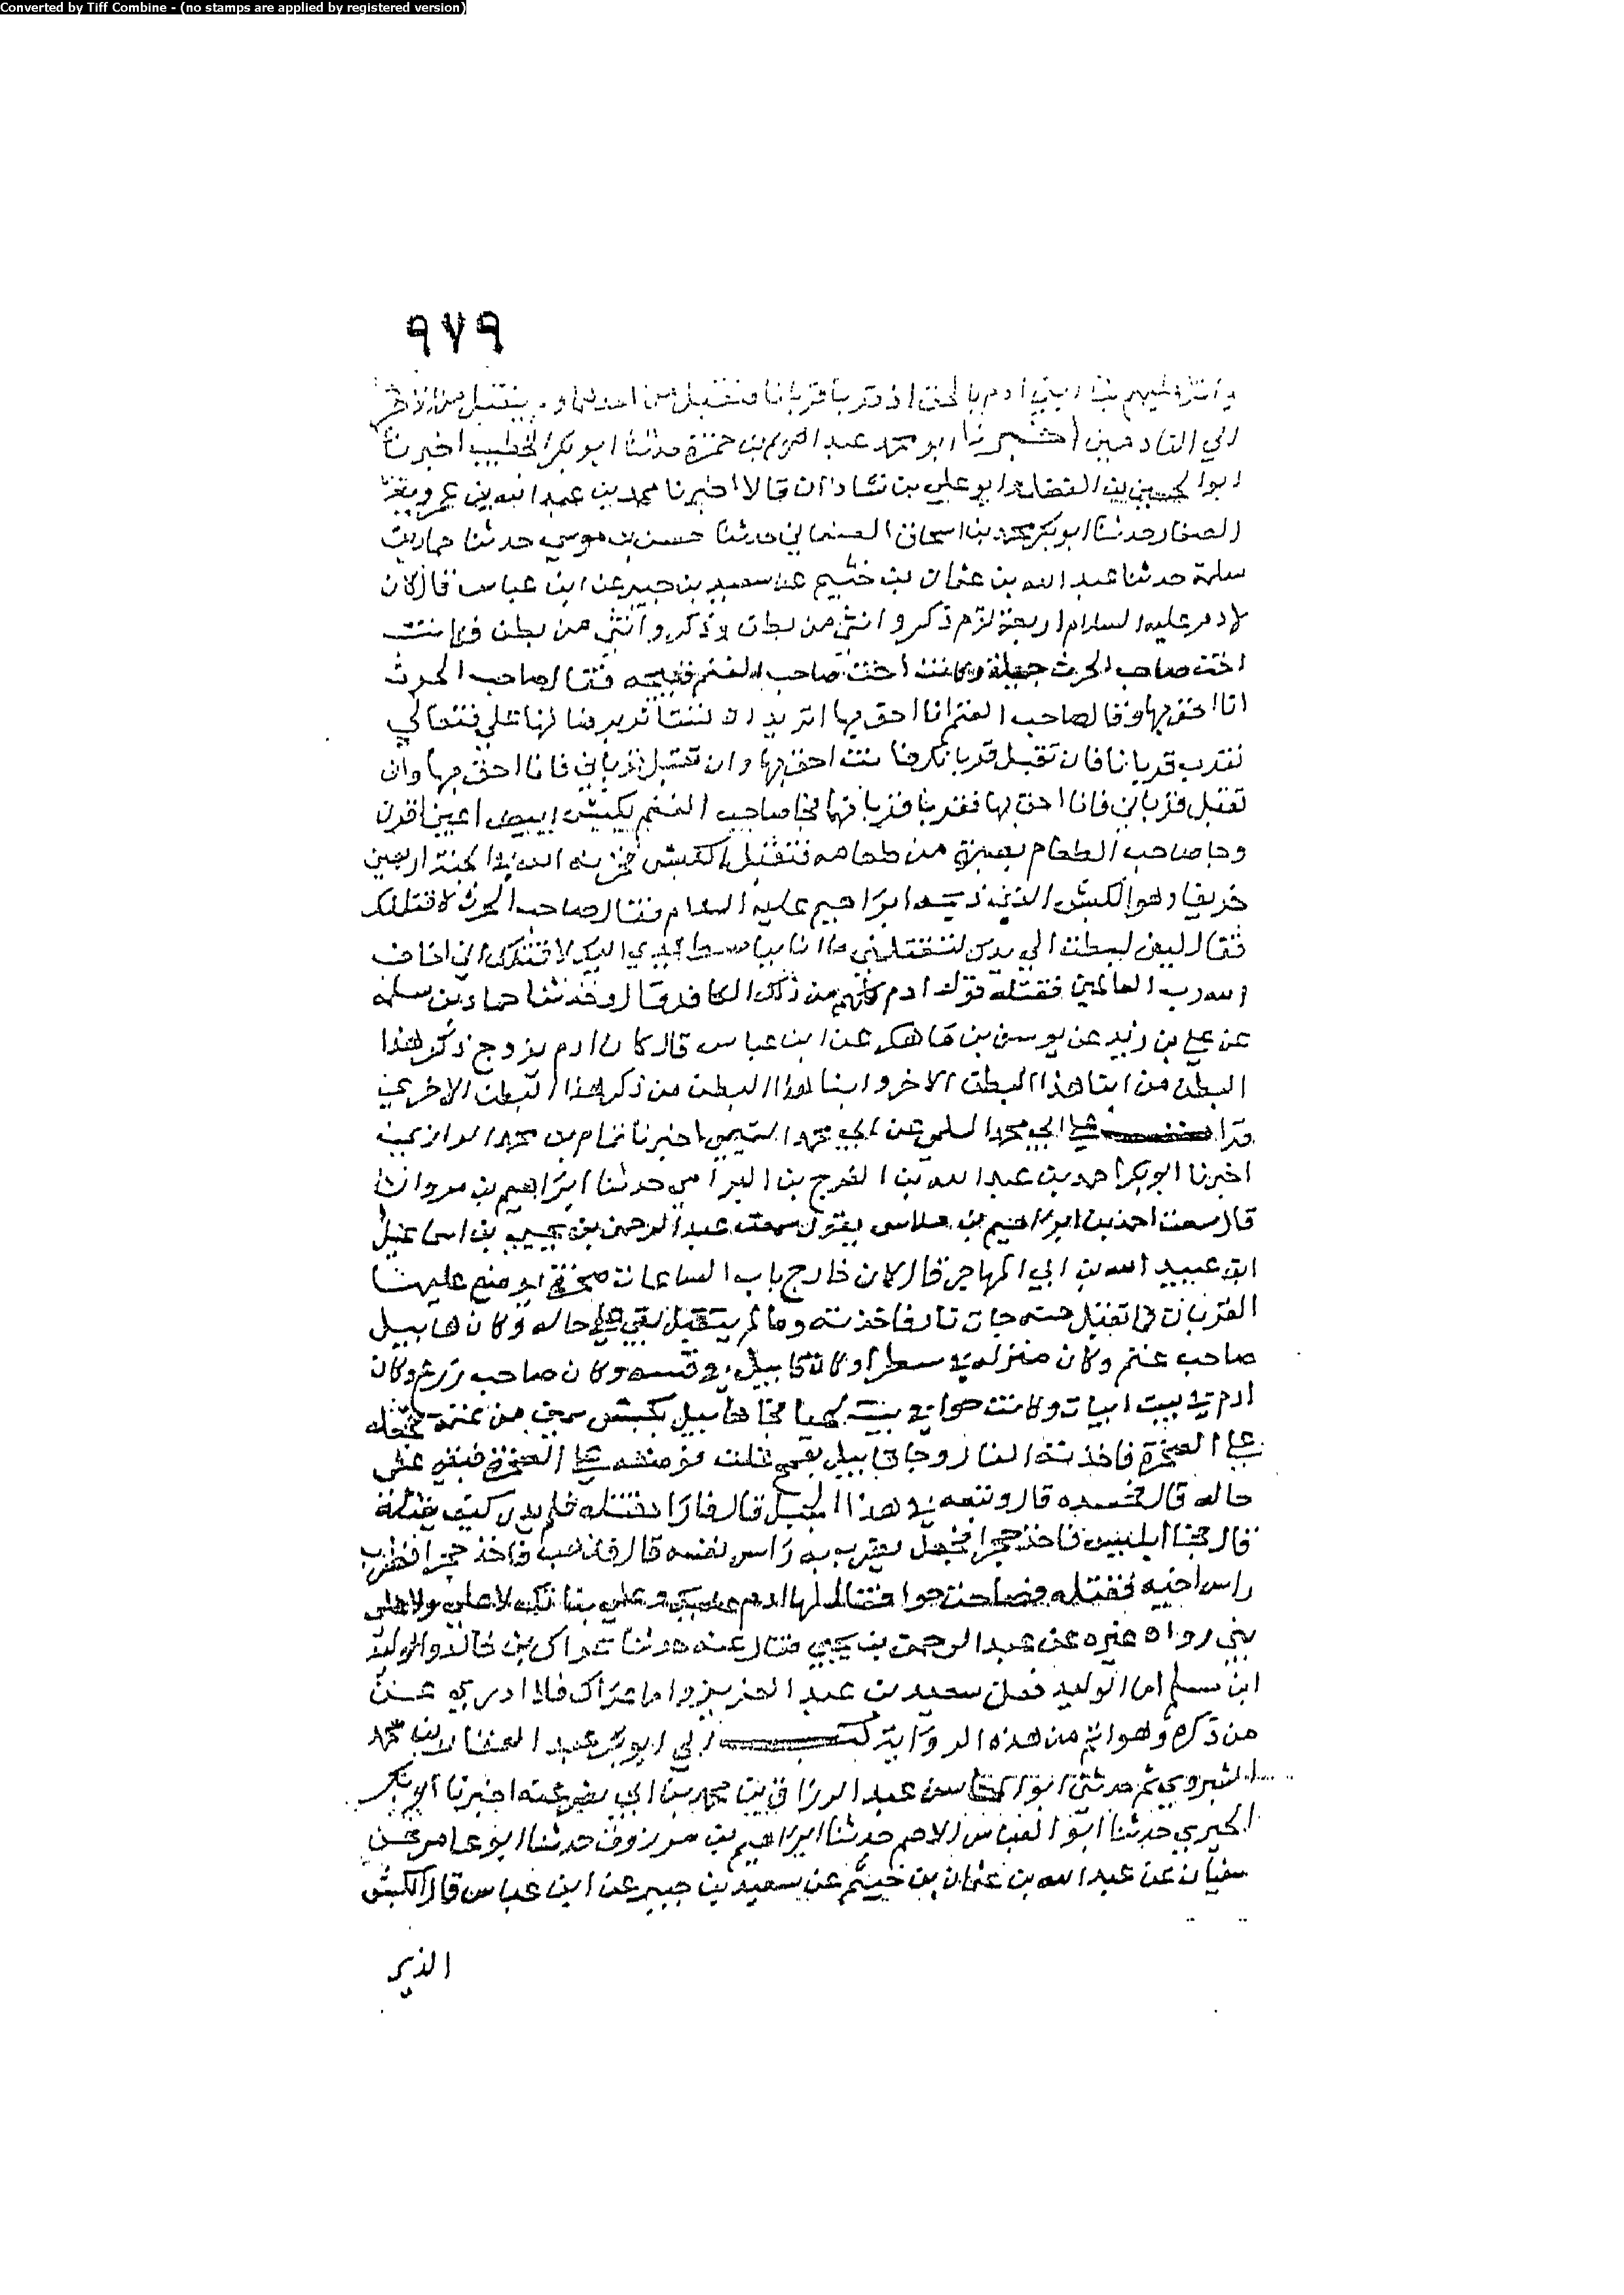 Converted by Tiff Combine - (no stamps are applied by registered version)
٩٧٩
واتل عليهم نبا ابني ادم بالحق اذ قربا قربانا فتقبل من احدهما ولم يتقبل من الاخر
الي النادمين اخبرنا ابو محمد عبد الكريم بن حمزة حدثنا ابو بكر الخطيب اخبرنا
ابو الحسين بن الفضل وابو علي بن شاذان قالا اخبرنا محمد بن عبد الله بن عمرويه
الصفار حدثنا ابو بكر محمد بن اسحاق الصنعاني حدثنا حسن بن موسي حدثنا حماد بن
سلمة حدثنا عبد الله بن عثمان بن خثيم عن سعيد بن جبير عن ابن عباس قال كان
لادم عليه السلام اربعة توم ذكر وانثي من بطن وذكر وانثي من بطن فكانت
اخت صاحب الحرث جميلة وكانت اخت صاحب الغنم قبيحه فقال صاحب الحرث
انا احق بها وقال صاحب الغنم انا احق بها اتريد ان تستاثر بوضاتها علي فتعالي
نقرب قربانا فان تقبل قربانك كنت احق بها وان تقبل قرباني فانا احق بها وان
تقبل قرباني فانا احق بها فقربا قربانهما فجا صاحب الغنم بكبش ابيض اعين اقرن
وجا صاحب الطعام بصبرة من طعامه فتقبل الكبش فخزنه الله في الجنة اربعين
خريفا وهو الكبش الذي ذبحه ابراهيم عليه السلام فقال صاحب الحرث لاقتلنك
فقال لين بسطت الي يدك لتقتلني ما انا بباسط يدي اليك لاقتلك اني اخاف
الله رب العالمين فقتله فولد ادم كلهم من ذلك الكافر قال وحدثنا حماد بن سلمه
عن علي بن زيد عن يوسف بن ماهك عن ابن عباس قال كان ادم يزوج ذكر هذا
البطن من انثا هذا البطن الاخر وانثا هذا البطن من ذكر هذا البطن الاخر
قرات علي ابي محمد السلمي عن ابي محمد التميمي اخبرنا تمام بن محمد الرازي
اخبرنا ابو بكر احمد بن عبد الله بن الفرج بن البرامي حدثنا ابراهيم بن مروان
قال سمعت احمد بن ابراهيم بن ملاس يقول سمعت عبد الرحمن بن يحيي بن اسماعيل
ابن عبيد الله بن ابي المهاجر قال كان خارج باب الساعات صخرة يوضع عليها
القربان فما تقبل منه جات نار فاخذته وما لم يتقبل بقي علي حاله وكان هابيل
صاحب غنم وكان منزله في سطرا وكان قابيل في قنينه وكان صاحب زرع وكان
ادم في بيت ابيات وكانت حوا في بيت لهيا فجا هابيل بكبش سمين من غنمه فجعله
علي الصخرة فاخذته النار وجا قابيل بقمح غلث فوضعه علي الصخرة فبقي علي
حاله قال فحسده قال وتبعه في هذا الجبل قال فاراد قتله فلم يدر كيف يقتله
قال فجا ابليس فاخذ حجرا فجعل يضرب به راس نفسه قال فذهب فاخذ حجرا فضرب
راس اخيه فقتله فصاحت حوا فقال لها ادم عليك وعلي بناتك لا علي ولا علي
بني رواه غيره عن عبد الرحمن بن يحيي فقال عنه حدثنا عراك بن خالد والوليد
ابن مسلم اما الوليد فعن سعيد بن عبد العزيز واما عراك فلا ادري عن
من ذكره وهو اتم من هذه الرواية كتب الي ابو بكر عبد الغفار بن محمد
الشيروي ثم حدثني ابو المحاسن عبد الرزاق بن محمد بن ابي نصر عنه اخبرنا ابو بكر
الحيري حدثنا ابو العباس الاصم حدثنا ابراهيم بن مرزوق حدثنا ابو عامر عن
سفيان عن عبد الله بن عثمان بن خثيم عن سعيد بن جبير عن ابن عباس قال الكبش
الذي